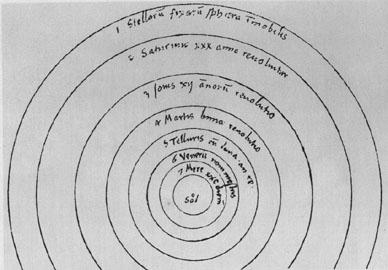 1 Stellarũ fixarũ sphæra ĩmobilis
2 Saturnus xxx anno reuoluitur
3 Iouis xij ãnorũ reuolutio
4 Martis bima reuolutio
5 Telluris cũ luna an re
6 Veneris nonimestris
7 Merc
Sol